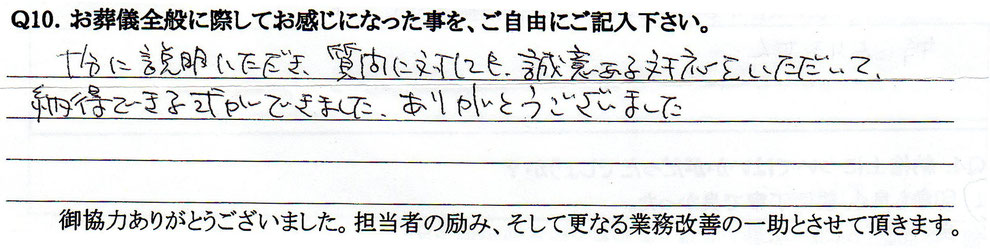 Q10. お葬儀全般に際してお感じになった事を、ご自由にご記入下さい。
十分に説明いただき、質問に対しても、誠意ある対応をいただいて、
納得できる式ができました、ありがとうございました
御協力ありがとうございました。担当者の励み、そして更なる業務改善の一助とさせて頂きます。